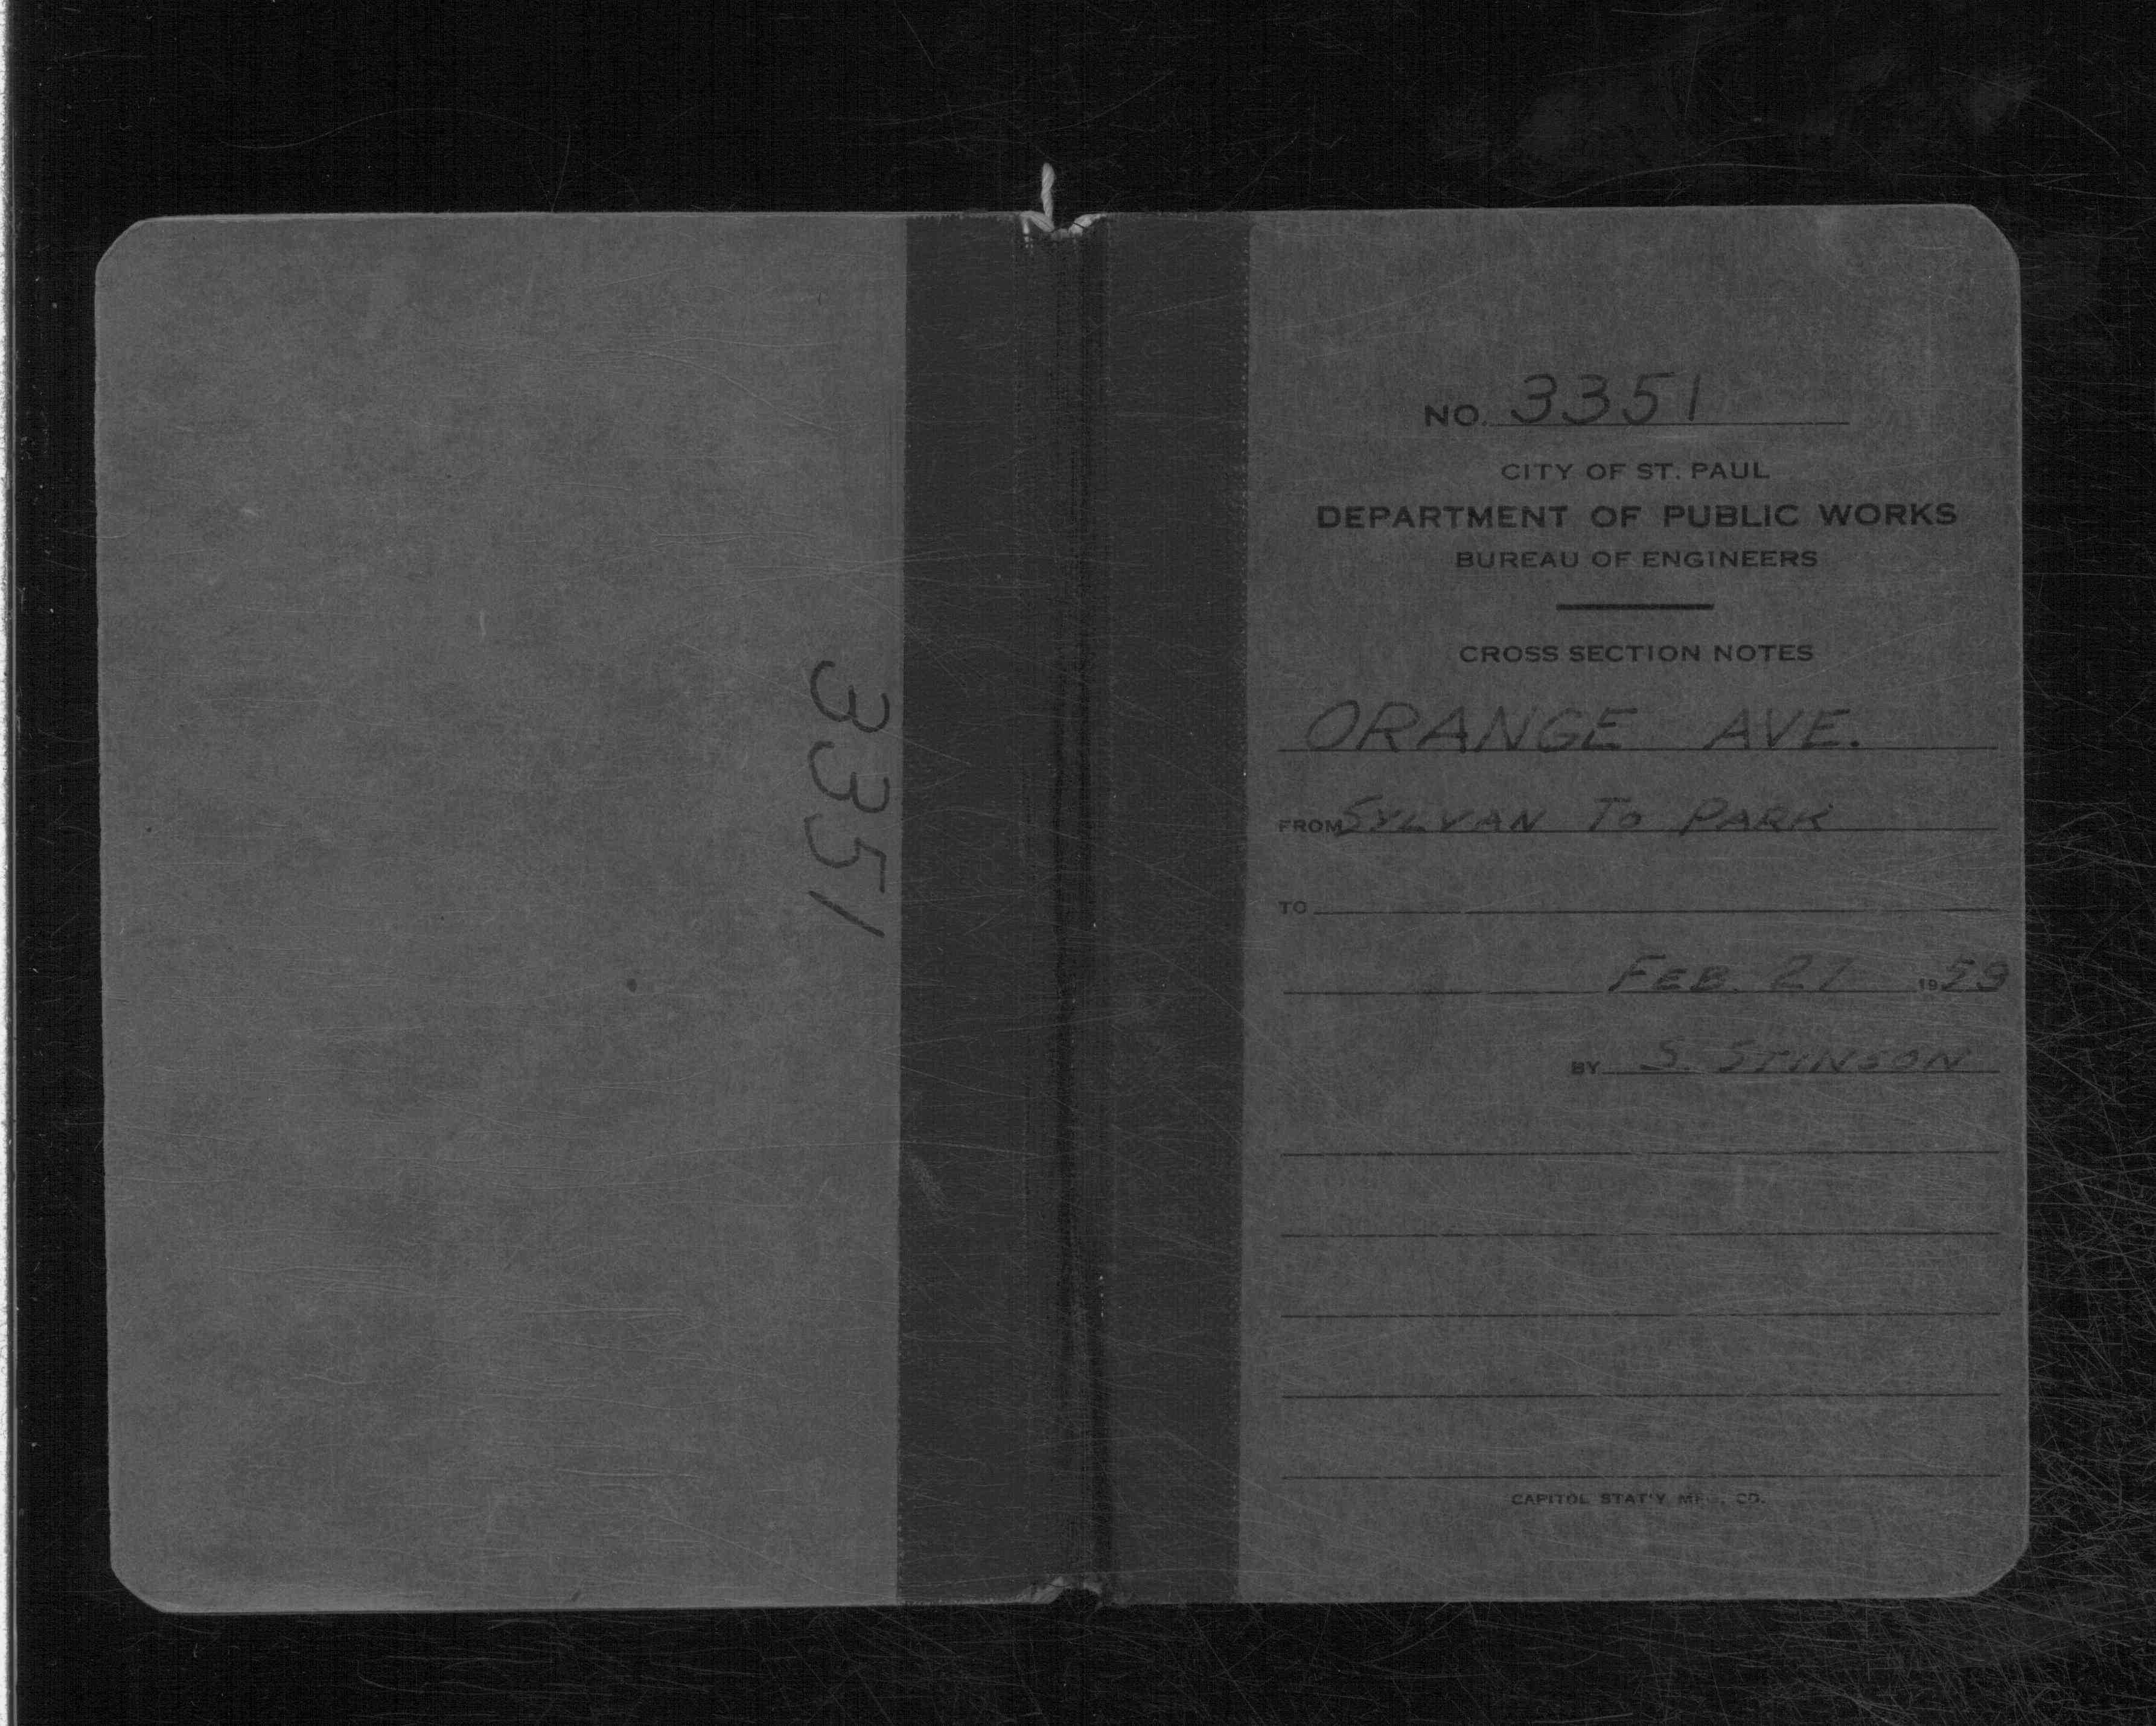 3351
NO. 3351
CITY OF ST. PAUL
DEPARTMENT OF PUBLIC WORKS
BUREAU OF ENGINEERS
CROSS SECTION NOTES
ORANGE AVE.
FROM SYLVAN TO PARK
TO
FEB. 27 1959
BY S. STINSON
CAPITOL STAT'Y MFG. CO.